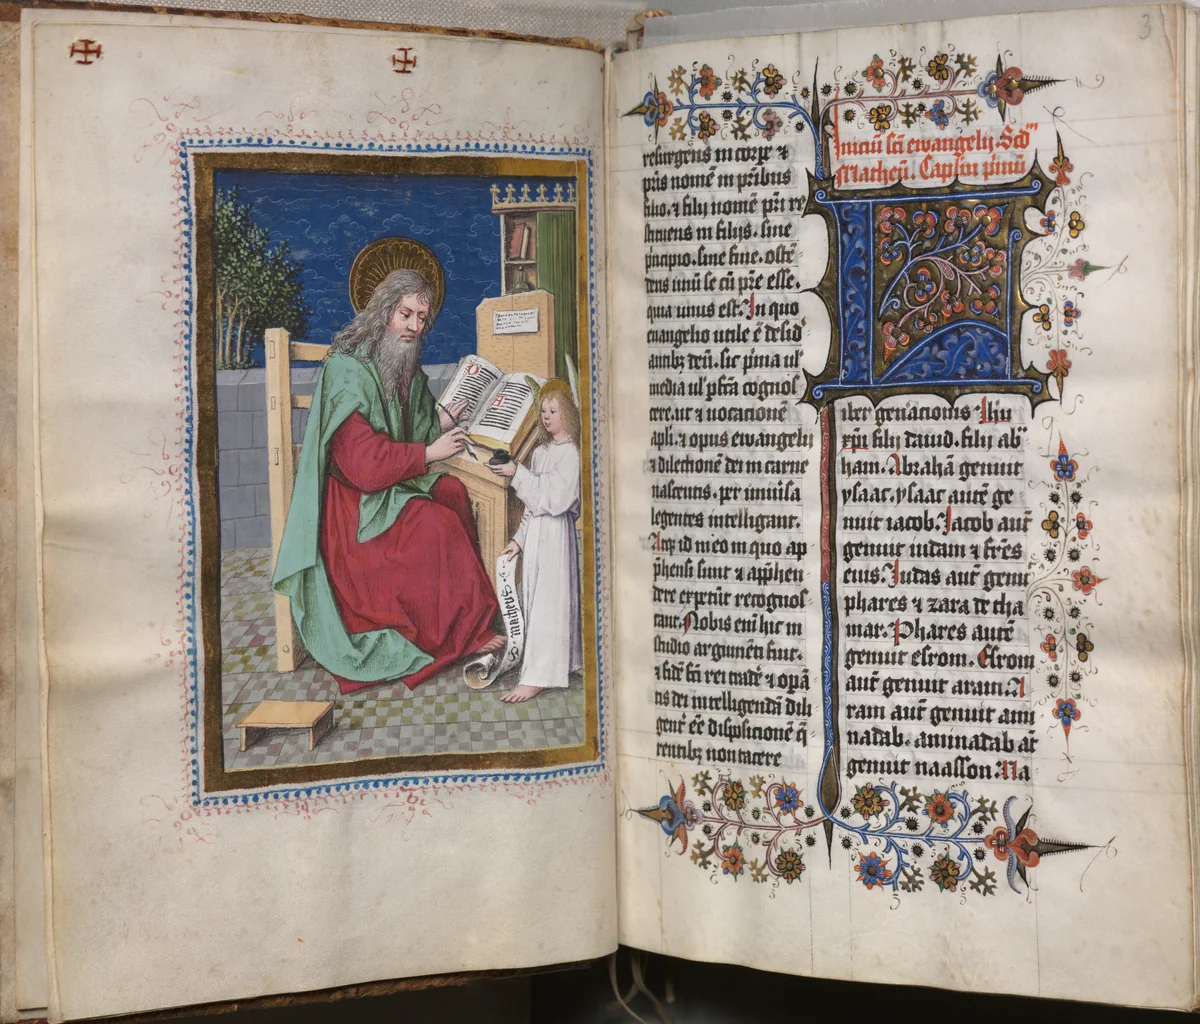 S. matheus.
3
resurgens in corpe &
pris nomē in pribus
filio. & filij nomē pri re
stituens in filijs. sine
principio. sine fine. ostē
dens unū se cū pre esse.
quia unus est. In quo
euangelio utile ē desid
antibz deū. sic prima ul'
media ul' pfcā cognos
cere. ut & uocationē
apli. & opus ewangelij
& dilectionē dei in carne
nascentis. per uniūsa
legentes intelligant.
Atqz id in eo in quo ap
phensi sunt & apphen
dere expetūt recognos
cant. Nobis enī hic in
studio argumēti fuit.
& fidē fcē rei tradē & opā
tis dei intelligendā dili
gent' eē dispositionē q̄
rentibz non tacere
Iniciū scī ewangelij. Scdʼ
Matheū. Capłm primū
Liber genʼacionis Ihū
xpi filij dauid. filij abʼ
ham. Abrahā genuit
ysaac. ysaac autē ge
nuit iacob. Jacob autʼ
genuit iudam & frēs
eius. Judas autʼ genuʼ
phares & zara de tha
mar. Phares autē
genuit esrom. Esrom
autʼ genuit aram. A
ram autʼ genuit ami
nadab. aminadab aūt
genuit naasson. Na